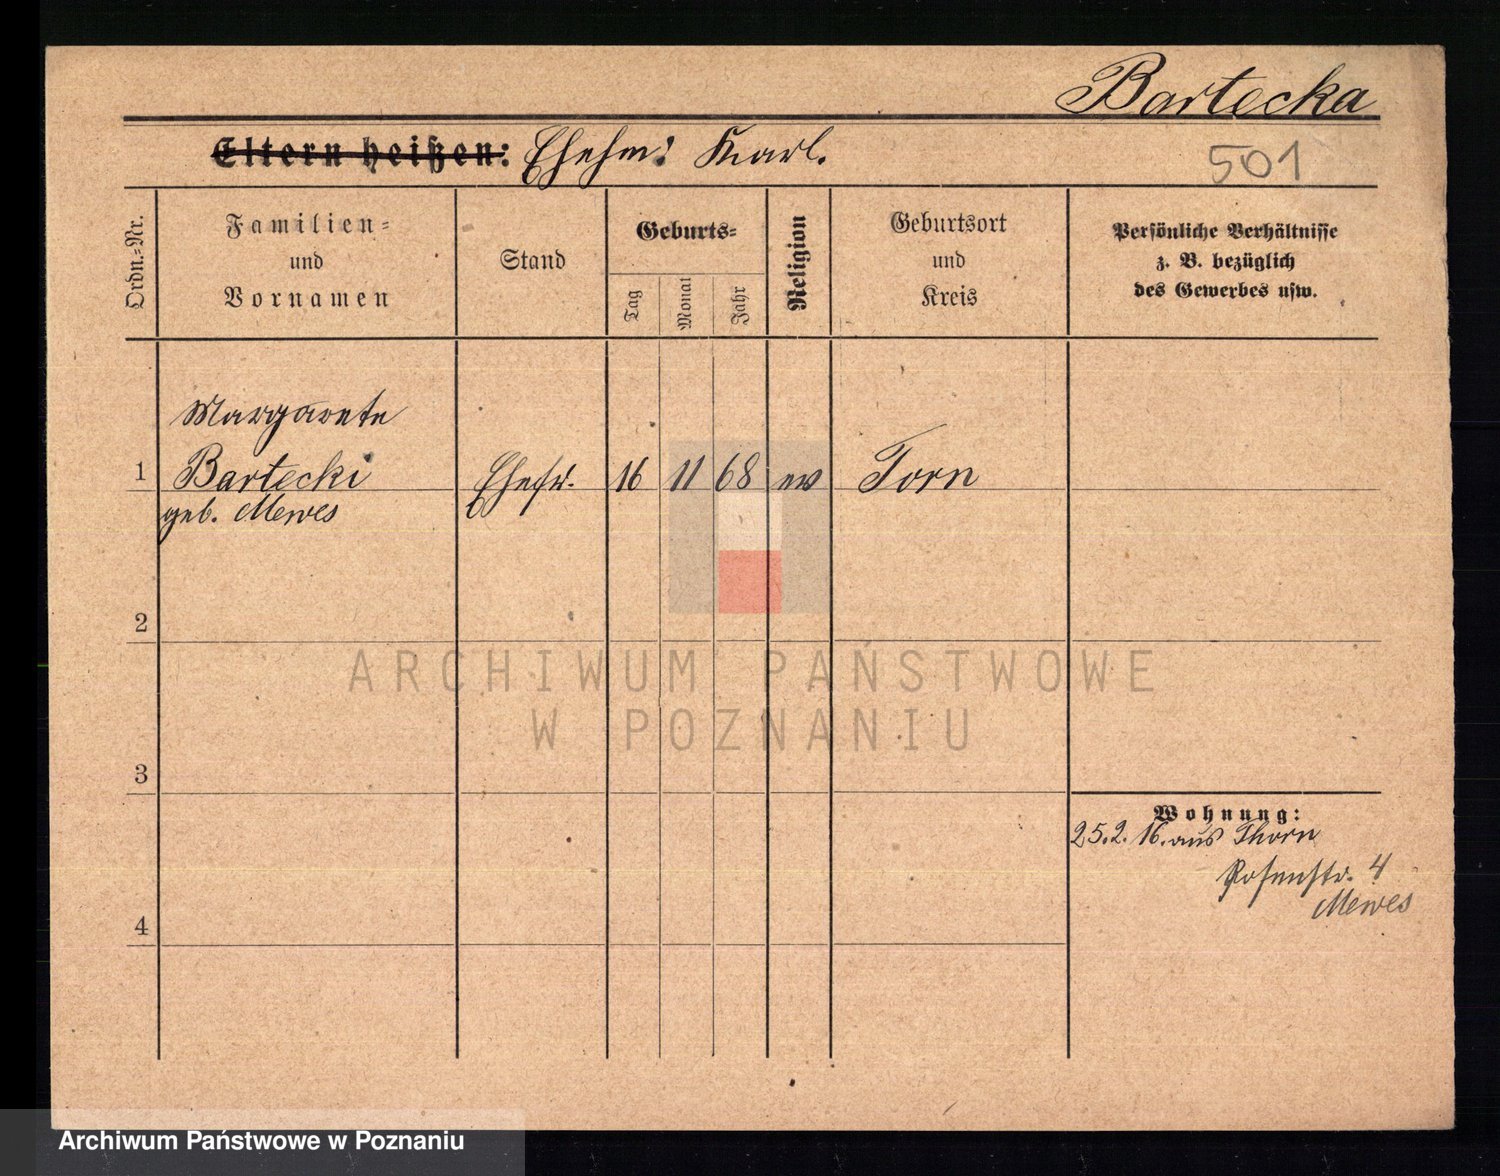 Bartecka
Eltern heißen: Ehehm: Karl.
501
Ordn.-Nr.
Familien-
und
Vornamen
Stand
Geburts-
Tag
Monat
Jahr
Religion
Geburtsort
und
Kreis
Persönliche Verhältnisse
z. B. bezüglich
des Gewerbes usw.
Margarete
1 Bartecki Ehefr. 16 11 68 ev Torn
geb. Mewes
2
ARCHIWUM PAŃSTWOWE
W POZNANIU
3
Wohnung:
25.2.16. aus Thorn
Rosenstr. 4
Mewes
4
Archiwum Państwowe w Poznaniu